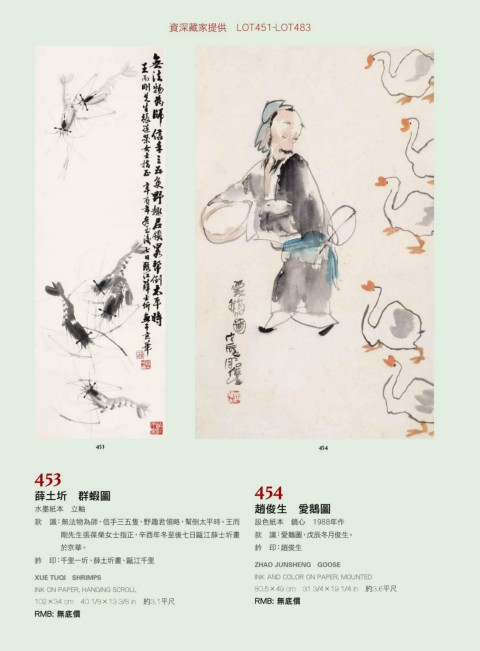 資深藏家提供 LOT451-LOT483
無法物為師信手三五隻野趣君領略幫倒太平時
愛鵝圖
453
454
453
薛土圻 群蝦圖
水墨紙本 立軸
款 識：無法物為師，信手三五隻，野趣君領略，幫倒太平時。王而
剛先生張葆榮女士指正，辛酉年冬至後七日甌江薛士圻畫
於京華。
鈐 印：千里一圻、薛土圻畫、甌江千里
XUE TUQI SHRIMPS
INK ON PAPER, HANGING SCROLL
102×34 cm 40 1/8×13 3/8 in 約3.1平尺
RMB: 無底價
454
趙俊生 愛鵝圖
設色紙本 鏡心 1988年作
款 識：愛鵝圖，戊辰冬月俊生。
鈐 印：趙俊生
ZHAO JUNSHENG GOOSE
INK AND COLOR ON PAPER, MOUNTED
80.5×49 cm 31 3/4×19 1/4 in 約3.6平尺
RMB: 無底價